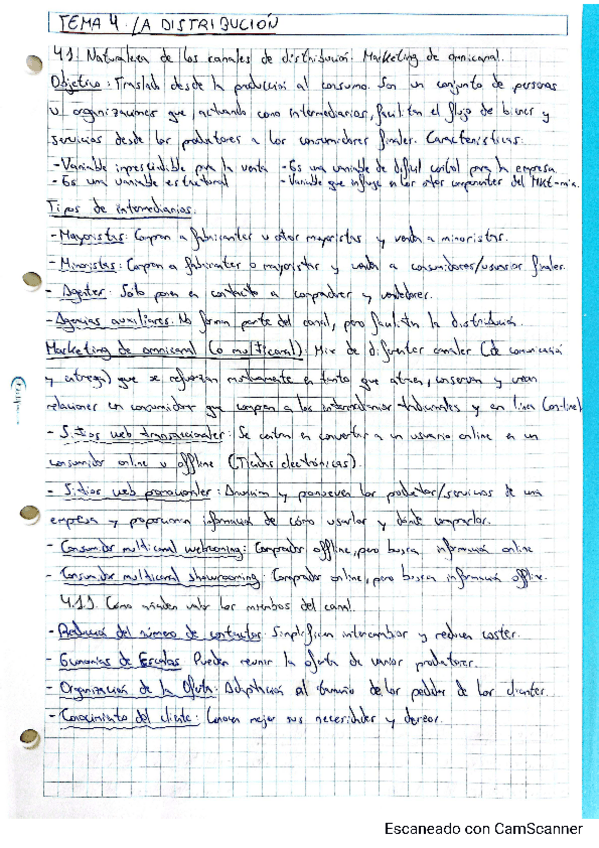 TEMA 4. LA DISTRIBUCIÓN
4.1. Naturaleza de los canales de distribución: Marketing de omnicanal.
Objetivo: Traslado desde la producción al consumo. Son un conjunto de personas
u organizaciones que, actuando como intermediarios, facilitan el flujo de bienes y
servicios desde los productores a los consumidores finales. Características:
- Variable imprescindible para la venta - Es una variable de difícil control para la empresa
- Es una variable estructural - Variable que influye en los otros componentes del Mkt-mix.
Tipos de intermediarios.
- Mayoristas: Compran a fabricantes u otros mayoristas y venden a minoristas.
- Minoristas: Compran a fabricantes o mayoristas y venden a consumidores/usuarios finales.
- Agentes: Solo ponen en contacto a compradores y vendedores.
- Agencias auxiliares: No forman parte del canal, pero facilitan la distribución.
Marketing de omnicanal (o multicanal): Mix de diferentes canales (de comunicación
y entrega) que se refuerzan mutuamente en tanto que atraen, conservan y crean
relaciones con consumidores que compran a los intermediarios tradicionales y en línea (on-line)
- Sitios web transaccionales: Se centran en convertir a un usuario online en un
consumidor online u offline (Tiendas electrónicas).
- Sitios web promocionales: Anuncian y promueven los productos/servicios de una
empresa y proporciona información de cómo usarlos y dónde comprarlos.
- Consumidor multicanal webrooming: Comprador offline, pero busca información online
- Consumidor multicanal showrooming: Comprador online, pero busca información offline.
4.1.1. Cómo añaden valor los miembros del canal.
- Reducción del número de contactos: Simplifican intercambios y reducen costes.
- Economías de Escalas: Pueden reunir la oferta de varios productores.
- Organización de la Oferta: Adaptación al tamaño de los pedidos de los clientes.
- Conocimiento del cliente: Conocen mejor sus necesidades y deseos.
Escaneado con CamScanner